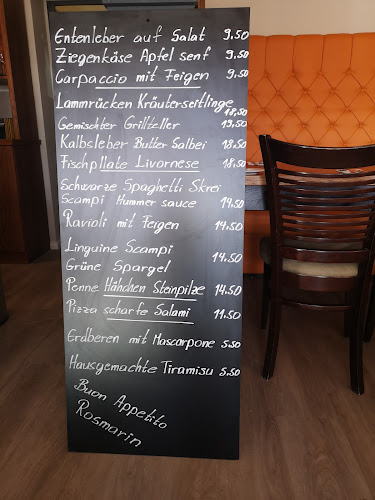 Entenleber auf Salat 9,50
Ziegenkäse Apfel senf 9,50
Carpaccio mit Feigen 9,50
Lammrücken Kräuterseitlinge
18,50
Gemischter Grillteller 19,50
Kalbsleber Butter Salbei 18,50
Fischpllate Livornese 18,50
Schwarze Spaghetti Skrei
Scampi Hummer sauce 14,50
Ravioli mit Feigen 14,50
Linguine Scampi
Grüne Spargel 14,50
Penne Hähchen Steinpilze 14,50
Pizza scharfe Salami 11.50
Erdberen mit Mascarpone 5.50
Hausgemachte Tiramisu 5.50
Buon Appetito
Rosmarin